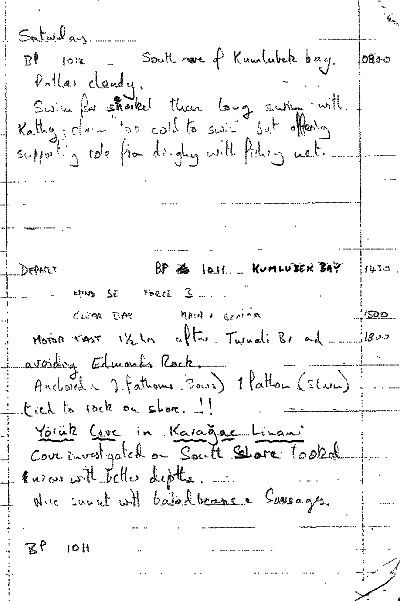 Saturday
BP 1012 South cove of Kumlubek bay. 0800
Rather cloudy.
Swim for snorkel then long swim with
Kathy; "too cold to swim" but offering
supporting role from dinghy with fishing net.
DEPART BP 1011 KUMLUBEK BAY 1430
WIND SE FORCE 3
CLEAR BAY MAIN & GENOA 1500
MOTOR FAST 1½ hrs after Bk and 1800
avoiding Edmonds Rock.
Anchored in 7 fathoms (Bows) 1 fathom (Stern)
tied to rock on shore. !!
Yörük Cove in Karağaç Limani
Cove investigated on South Shore looked
nicer with better depths.
Nice sunset with baked beans & Sausages.
BP 1011